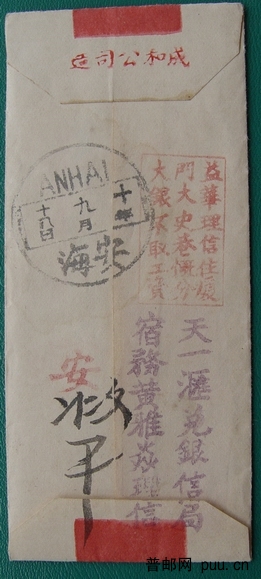 成和公司造
ANHAI
十年
九月
十八日
安海
益華理信住廈
門大史巷慨分
大銀不取工資
天一滙兌銀信局
宿務黃雅焱理信
安
普邮网 puu.cn